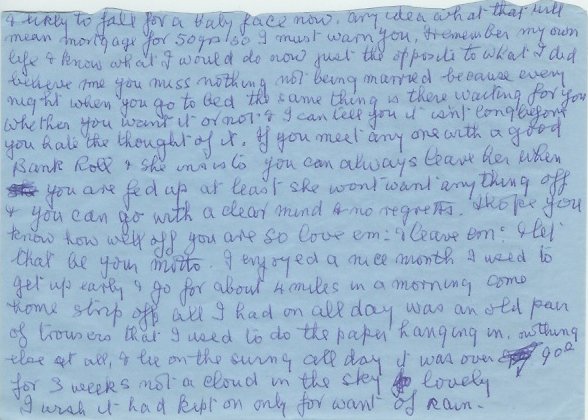 & likely to fall for a Baby face now, any idea what that will
mean mortgage for 50yrs so I must warn you, Remember my own
life & know what I would do now just the opposite to what I did
believe me you miss nothing not being married because every
night when you go to bed the same thing is there waiting for you
whether you want it or not & I can tell you it isn't long before
you hate the thought of it. If you meet any one with a good
Bank Roll & she insists you can always leave her when
you are fed up at least she wont want any thing off
& you can go with a clear mind & no regrets. I hope you
know how well off you are so love em: & leave em: & let
that be your motto. I enjoyed a nice month I used to
get up early & go for about 4 miles in a morning come
home strip off all I had on all day was an old pair
of trousers that I used to do the paper hanging in, nothing
else at all, & lie on the swing all day it was over 90°
for 3 weeks not a cloud in the sky lovely
I wish it had kept on only for want of rain.